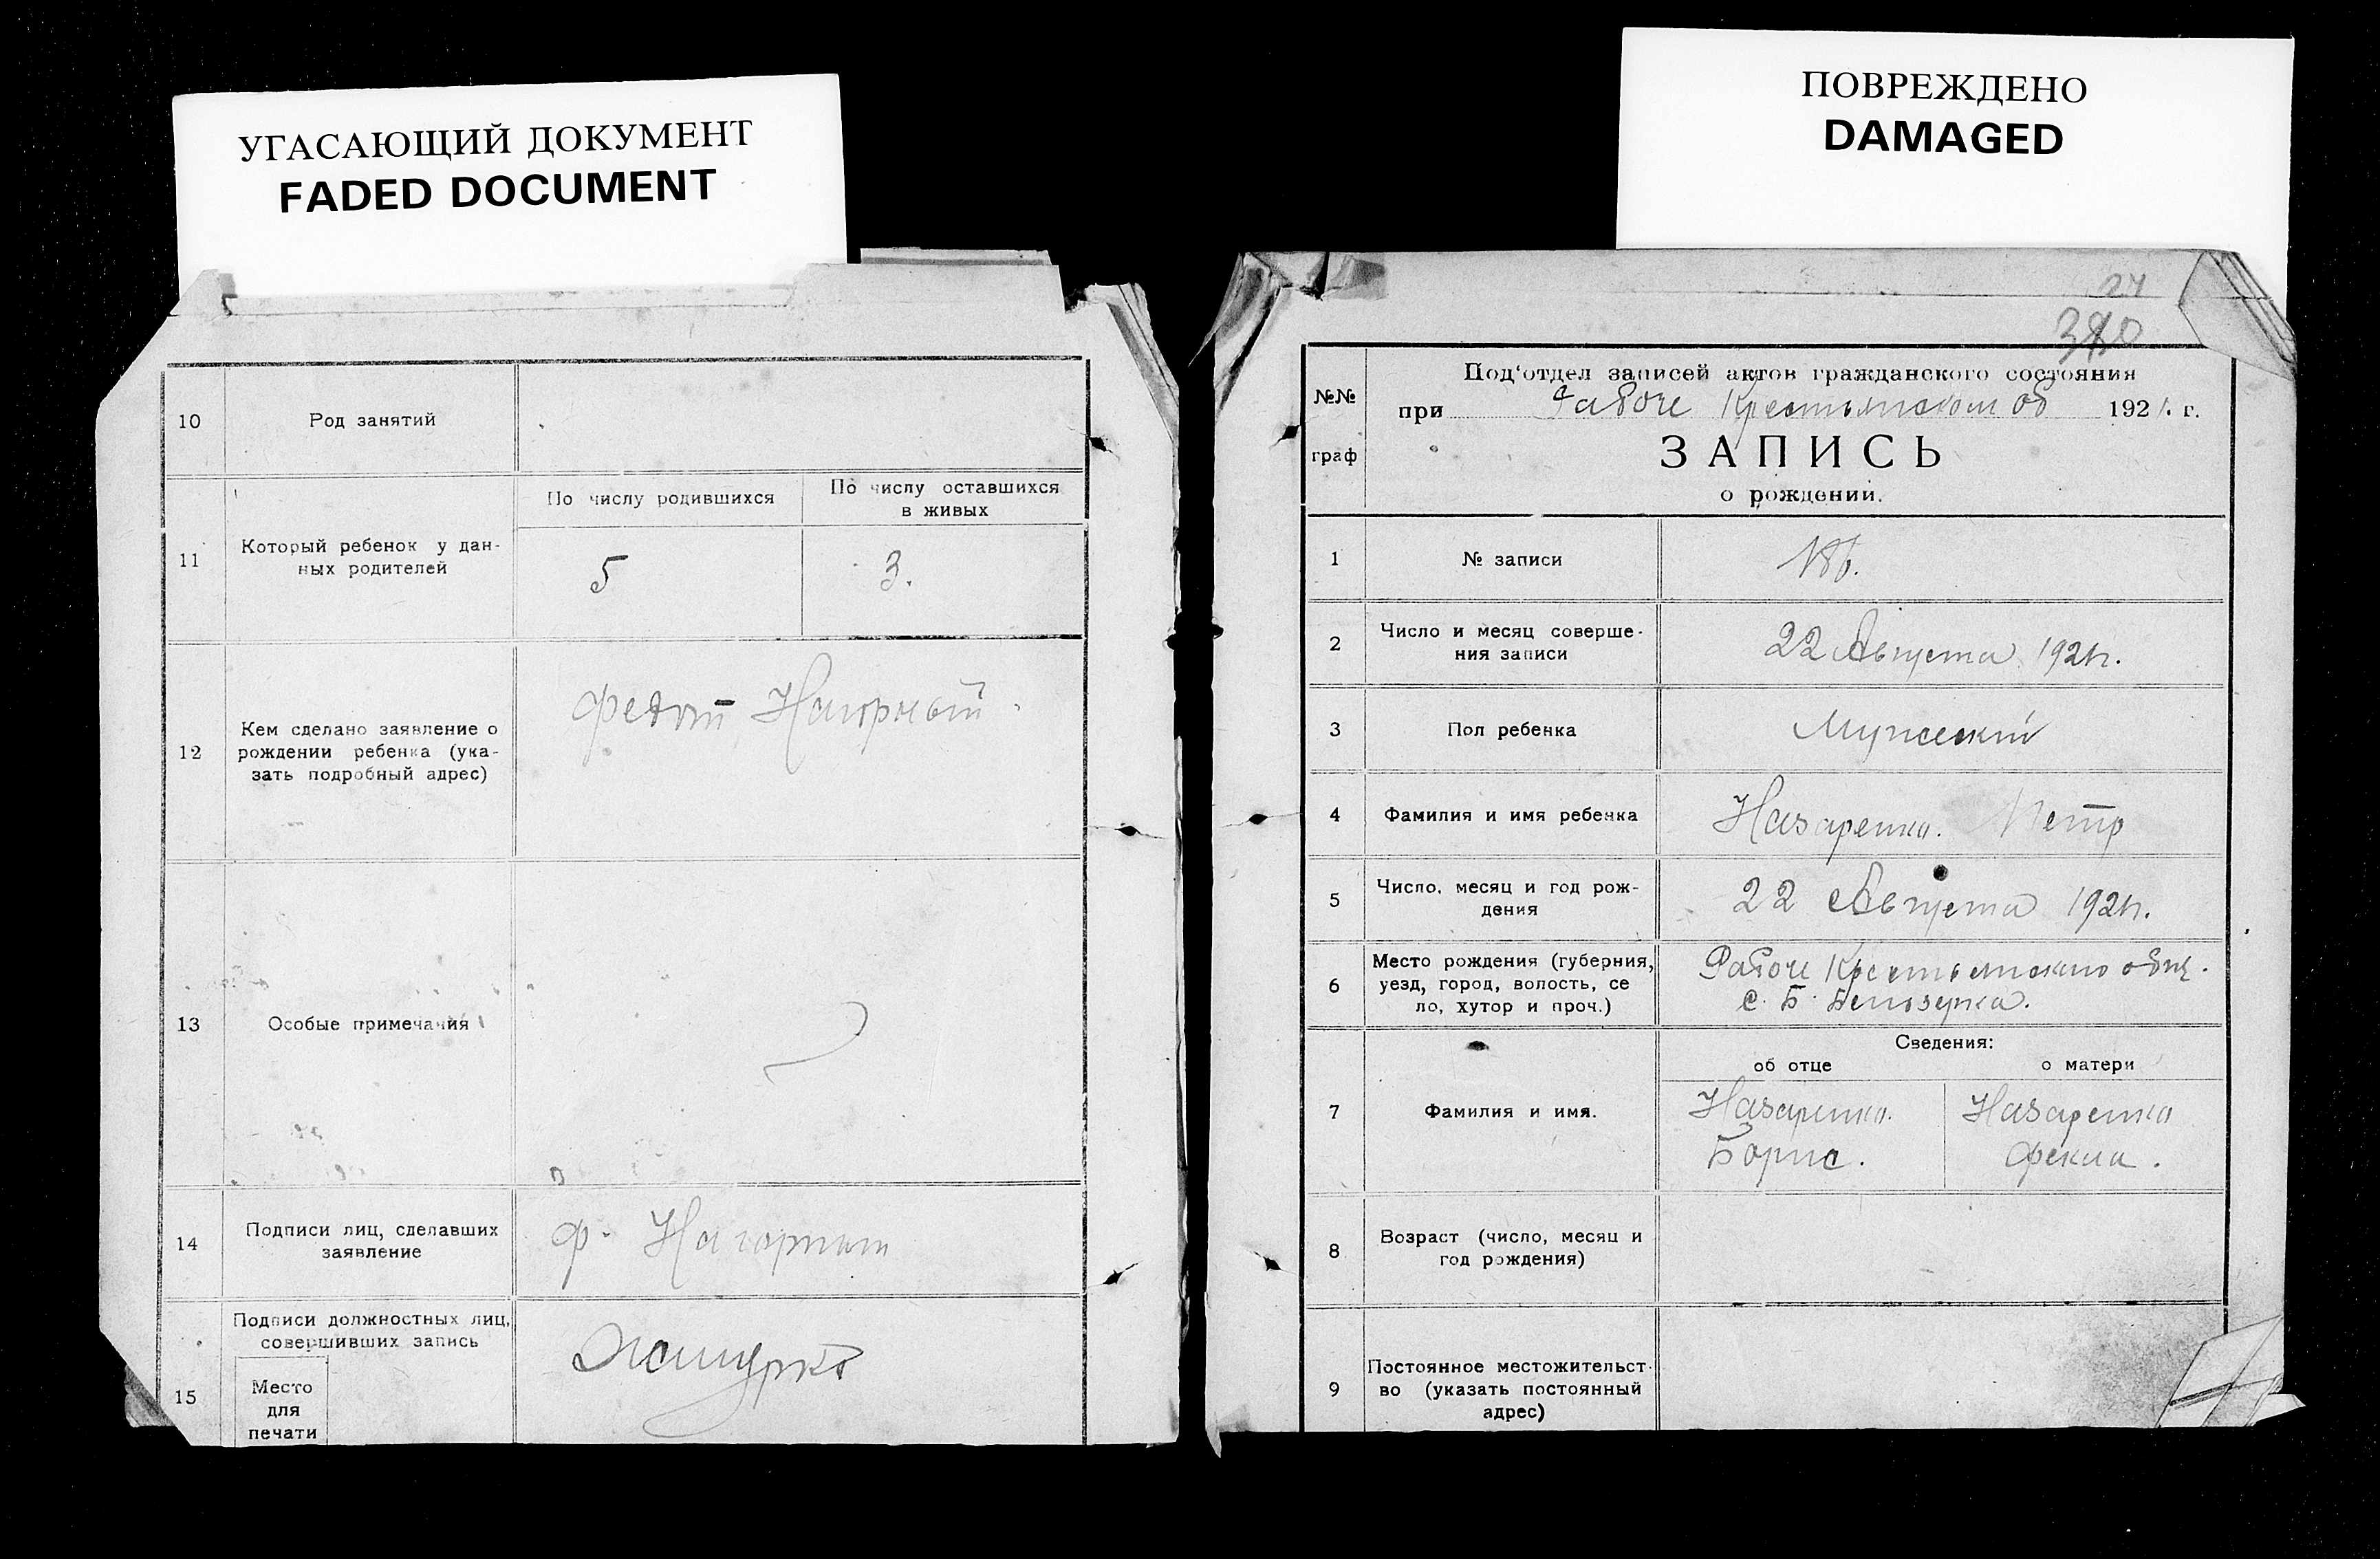 УГАСАЮЩИЙ ДОКУМЕНТ
FADED DOCUMENT
10
Род занятий
11
Который ребенок у дан-
ных родителей
По числу родившихся
По числу оставшихся
в живых
5
3.
12
Кем сделано заявление о
рождении ребенка (ука-
зать подробный адрес)
Федот Нагорный
13
Особые примечания
14
Подписи лиц, сделавших
заявление
Ф. Нагорный
15
Подписи должностных лиц,
совершивших запись
Место
для
печати
ПОВРЕЖДЕНО
DAMAGED
24
№№
граф
Под'отдел записей актов гражданского состояния
при Рабоче Крестьянском об 1921. г.
ЗАПИСЬ
о рождении.
1
№ записи
186.
2
Число и месяц соверше-
ния записи
22 Августа 1921г.
3
Пол ребенка
Мужеский
4
Фамилия и имя ребенка
Назаренко. Петр
5
Число, месяц и год рож-
дения
22 Августа 1921г.
6
Место рождения (губерния,
уезд, город, волость, се
ло, хутор и проч.)
Рабоче Крестьянского общ.
с. Б. Белозерка.
Сведения:
об отце
о матери
7
Фамилия и имя.
Назаренко.
Борис.
Назаренко
Фекла.
8
Возраст (число, месяц и
год рождения)
9
Постоянное местожительст-
во (указать постоянный
адрес)